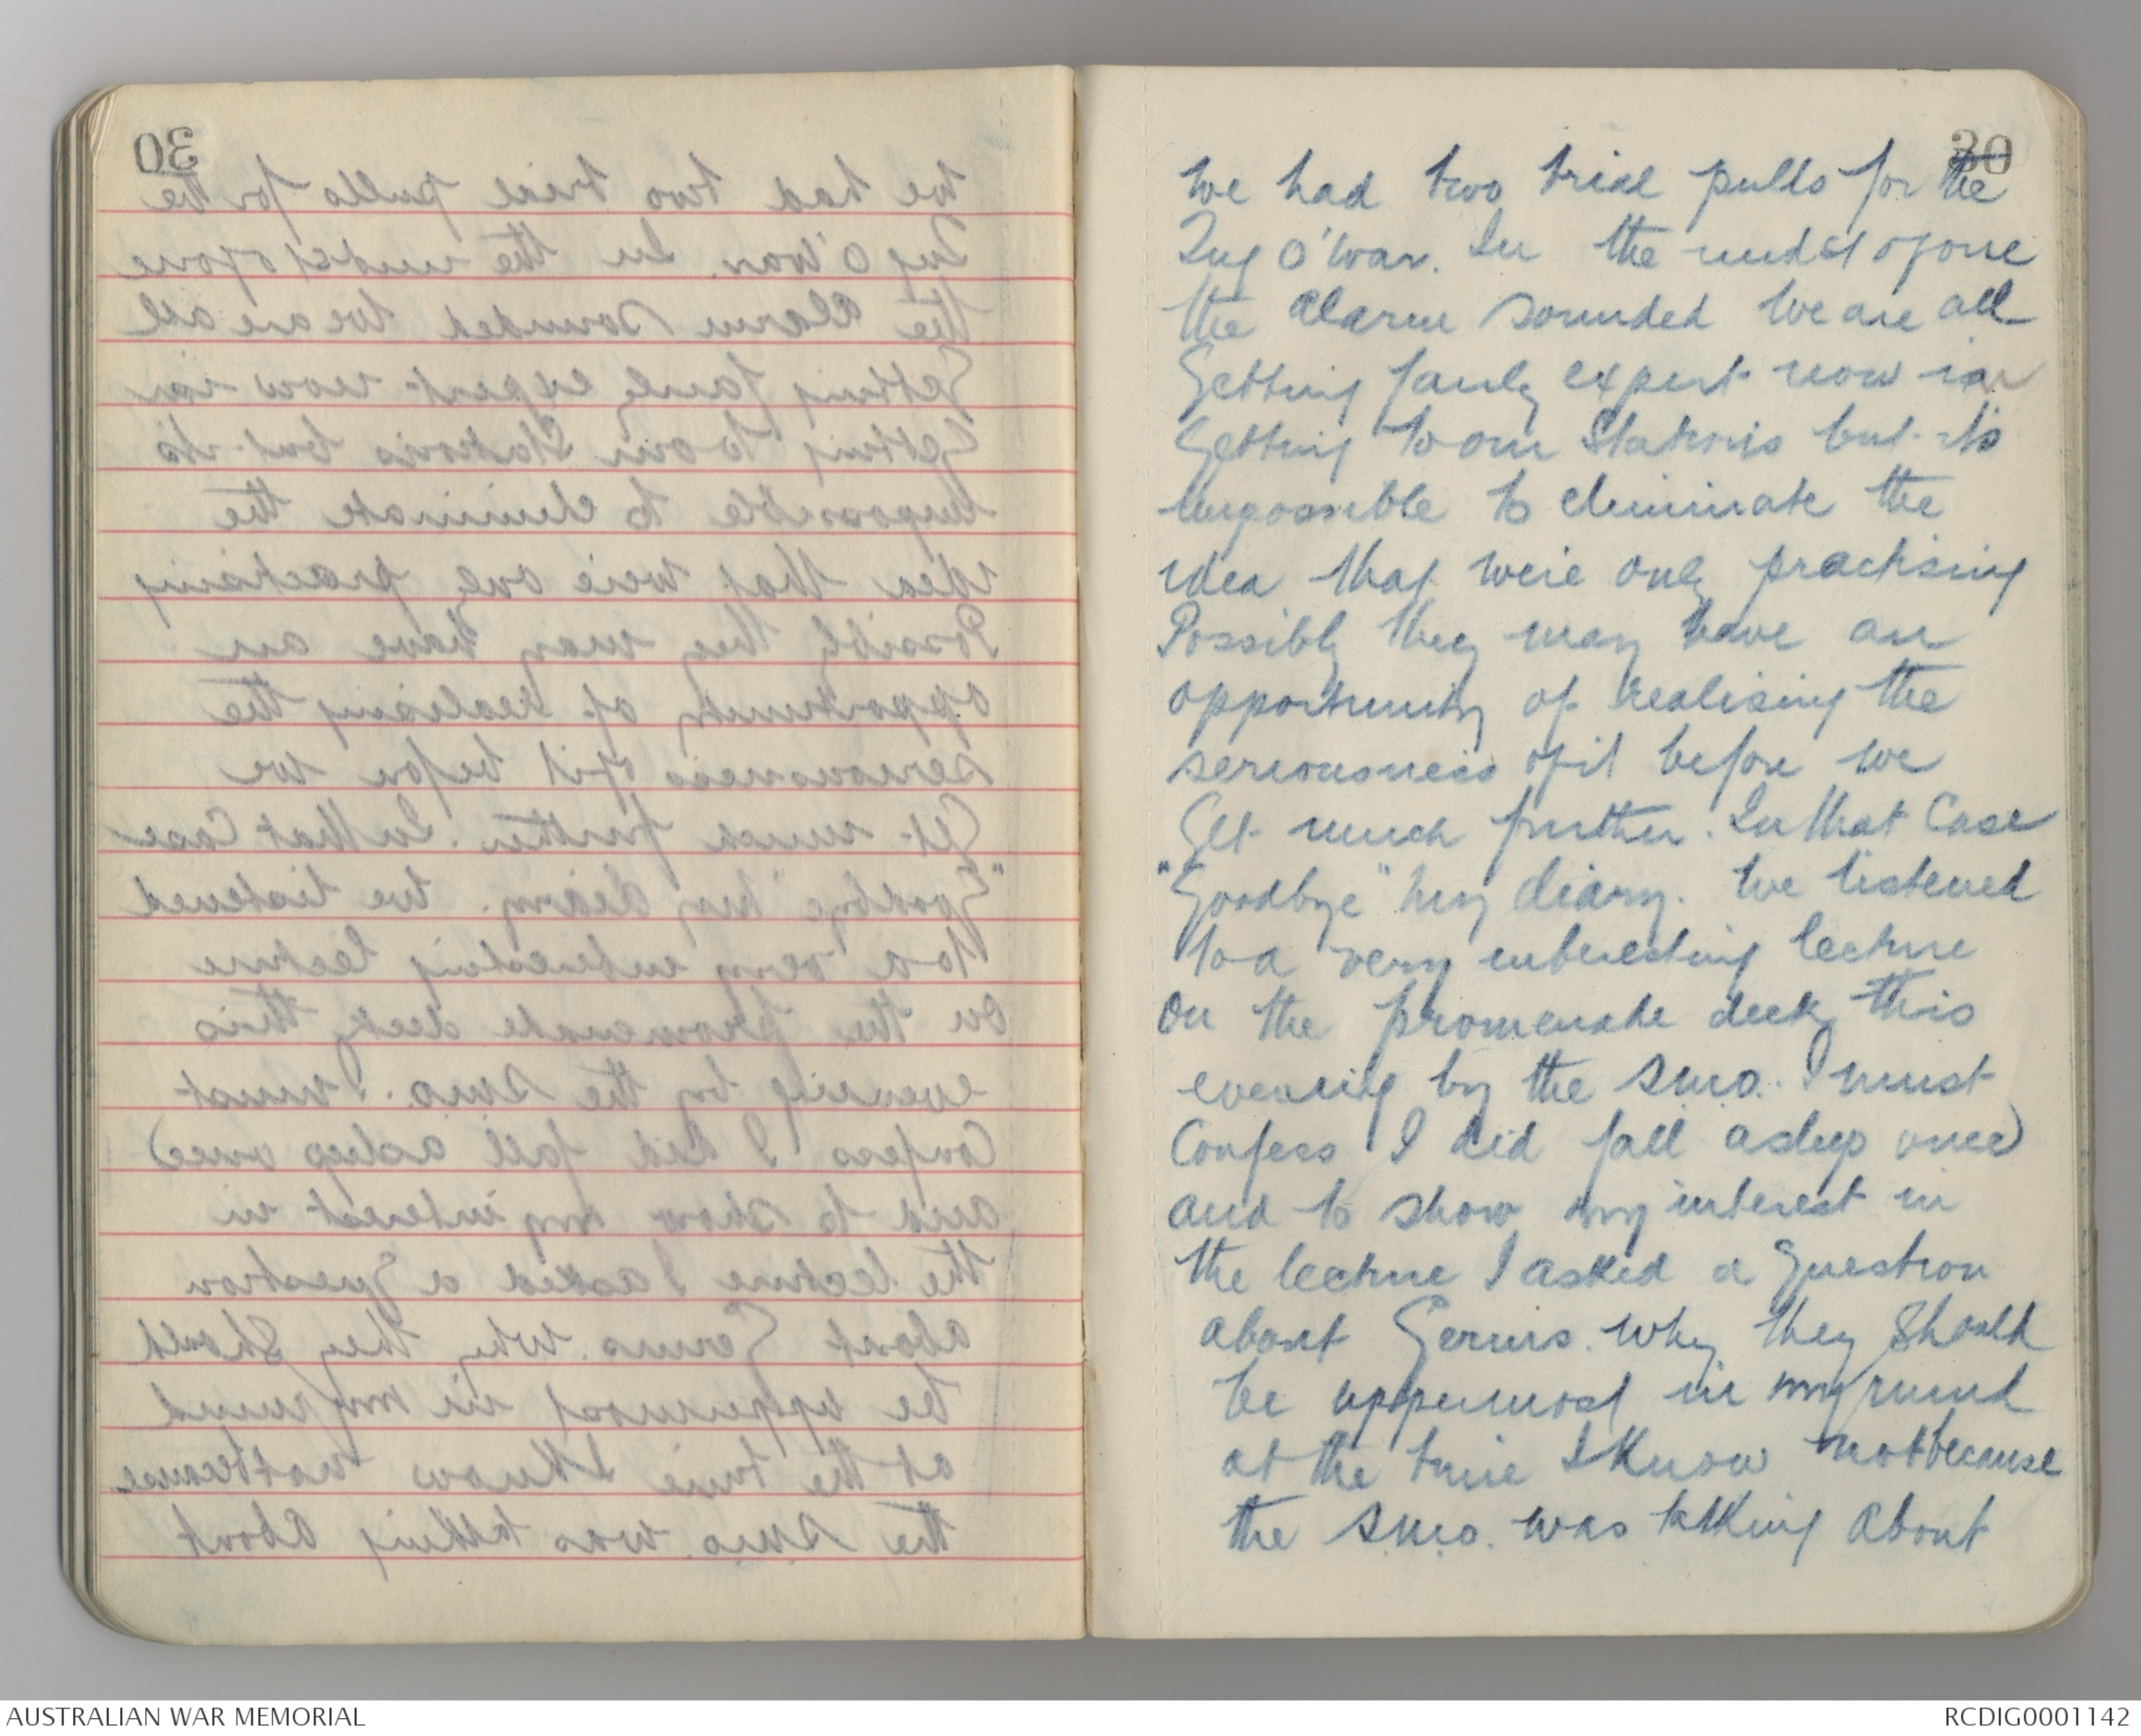 30
we had two trial pulls for the
Tug O'War. In the midst of one
the alarm sounded We are all
Getting fairly expert now in
Getting to our Stations but its
impossible to eliminate the
idea that we're only practising
Possibly they may have an
opportunity of realising the
seriousness of it before we
Get much further. In that Case
"Goodbye" my diary. We listened
to a very interesting lecture
On the promenade deck this
evening by the S.M.O. I must
Confess I did fall asleep once)
and to show my interest in
the lecture I asked a Question
about Germs. Why they Should
be uppermost in my mind
at the time I Know not because
the S.M.O. was talking about
AUSTRALIAN WAR MEMORIAL
RCDIG0001142